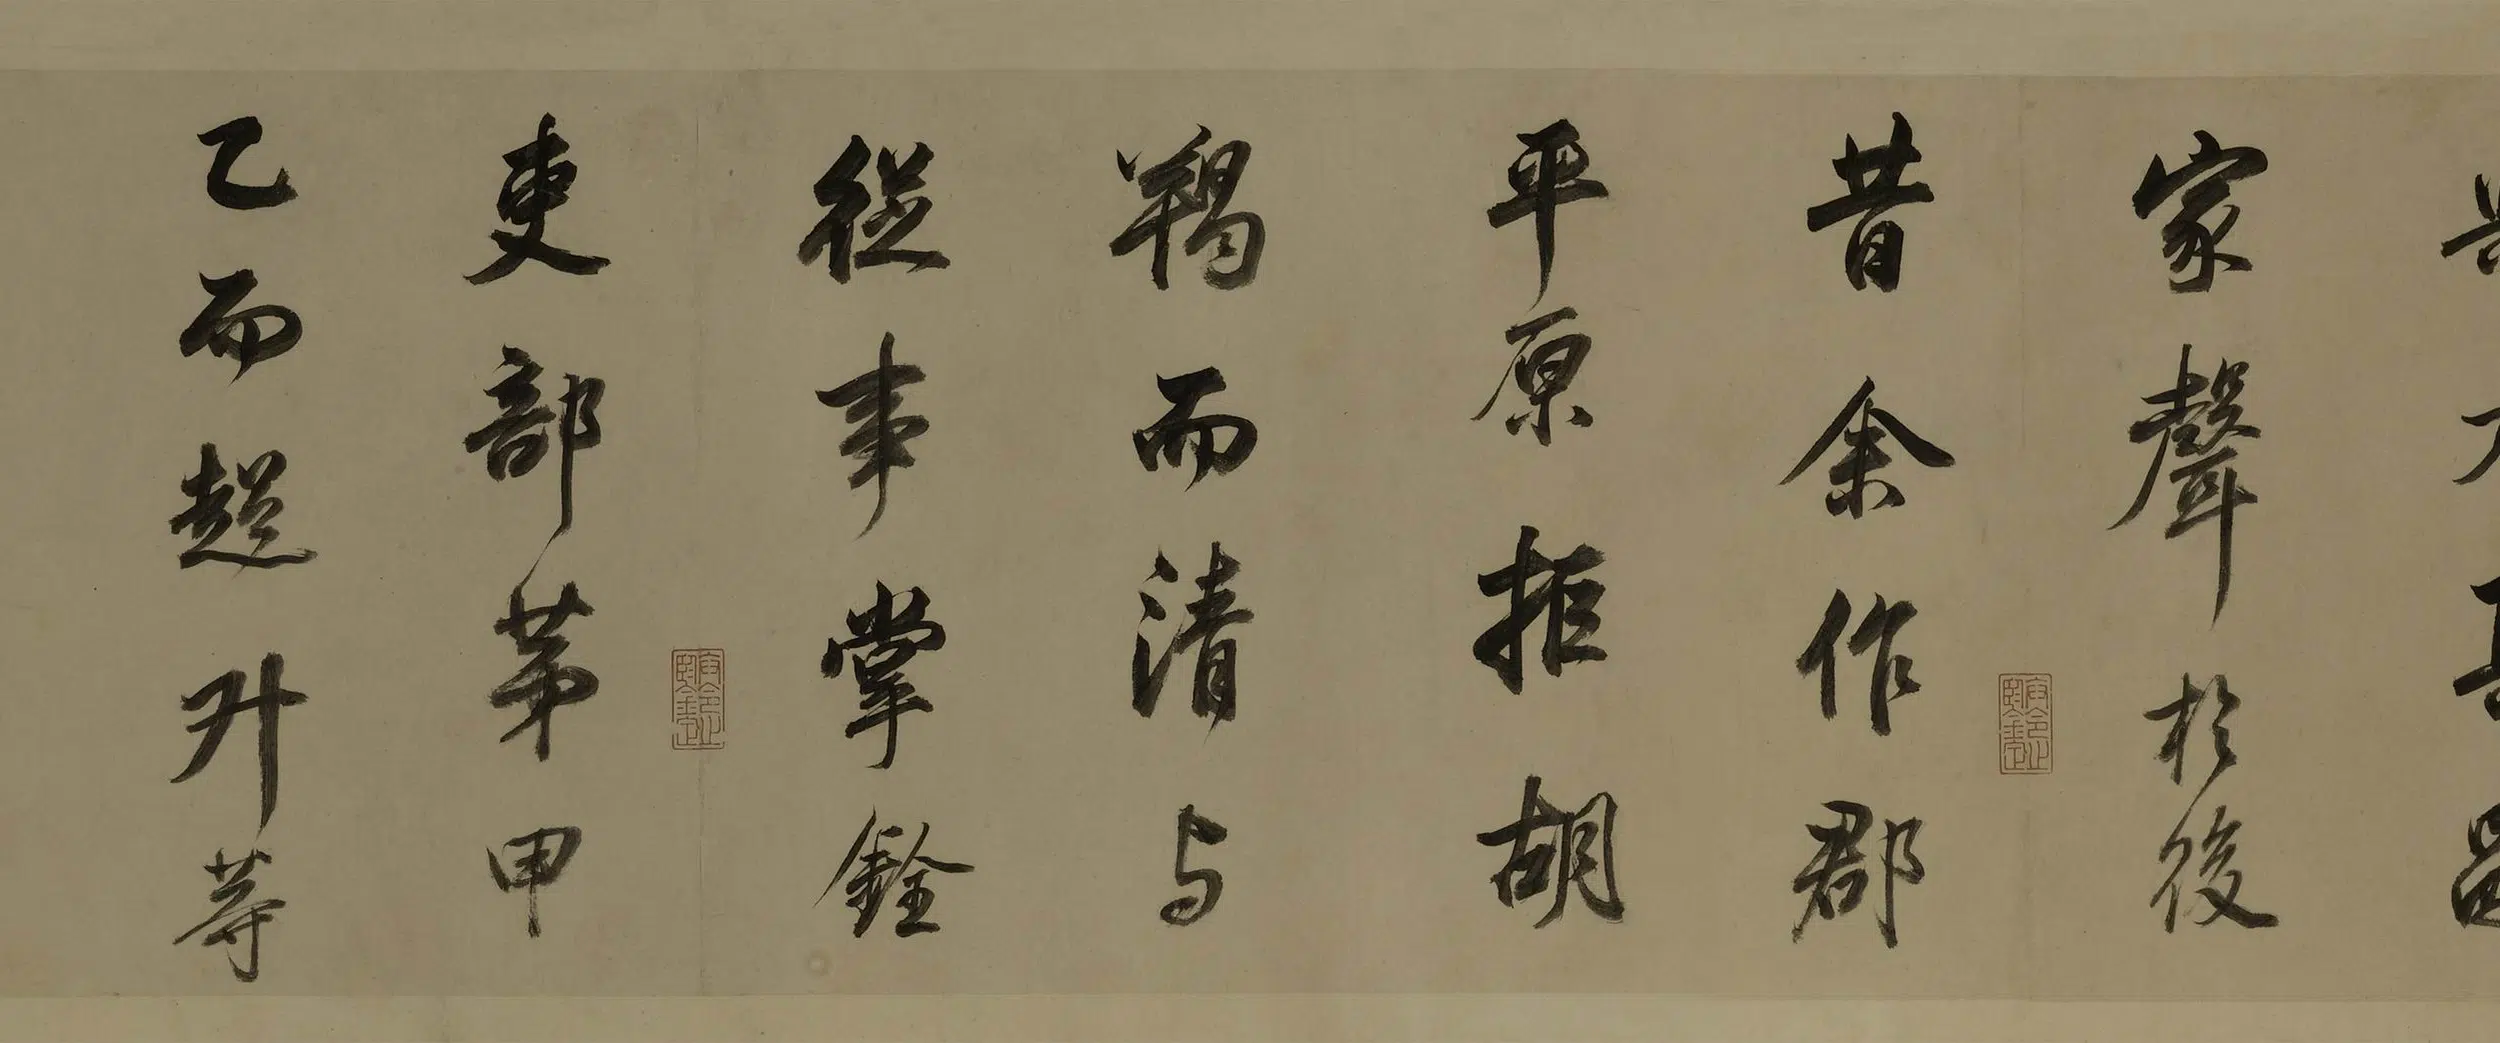 家聲於後
昔余作郡
平原拒胡
羯而清与
從事掌銓
吏部第甲
乙而超升等